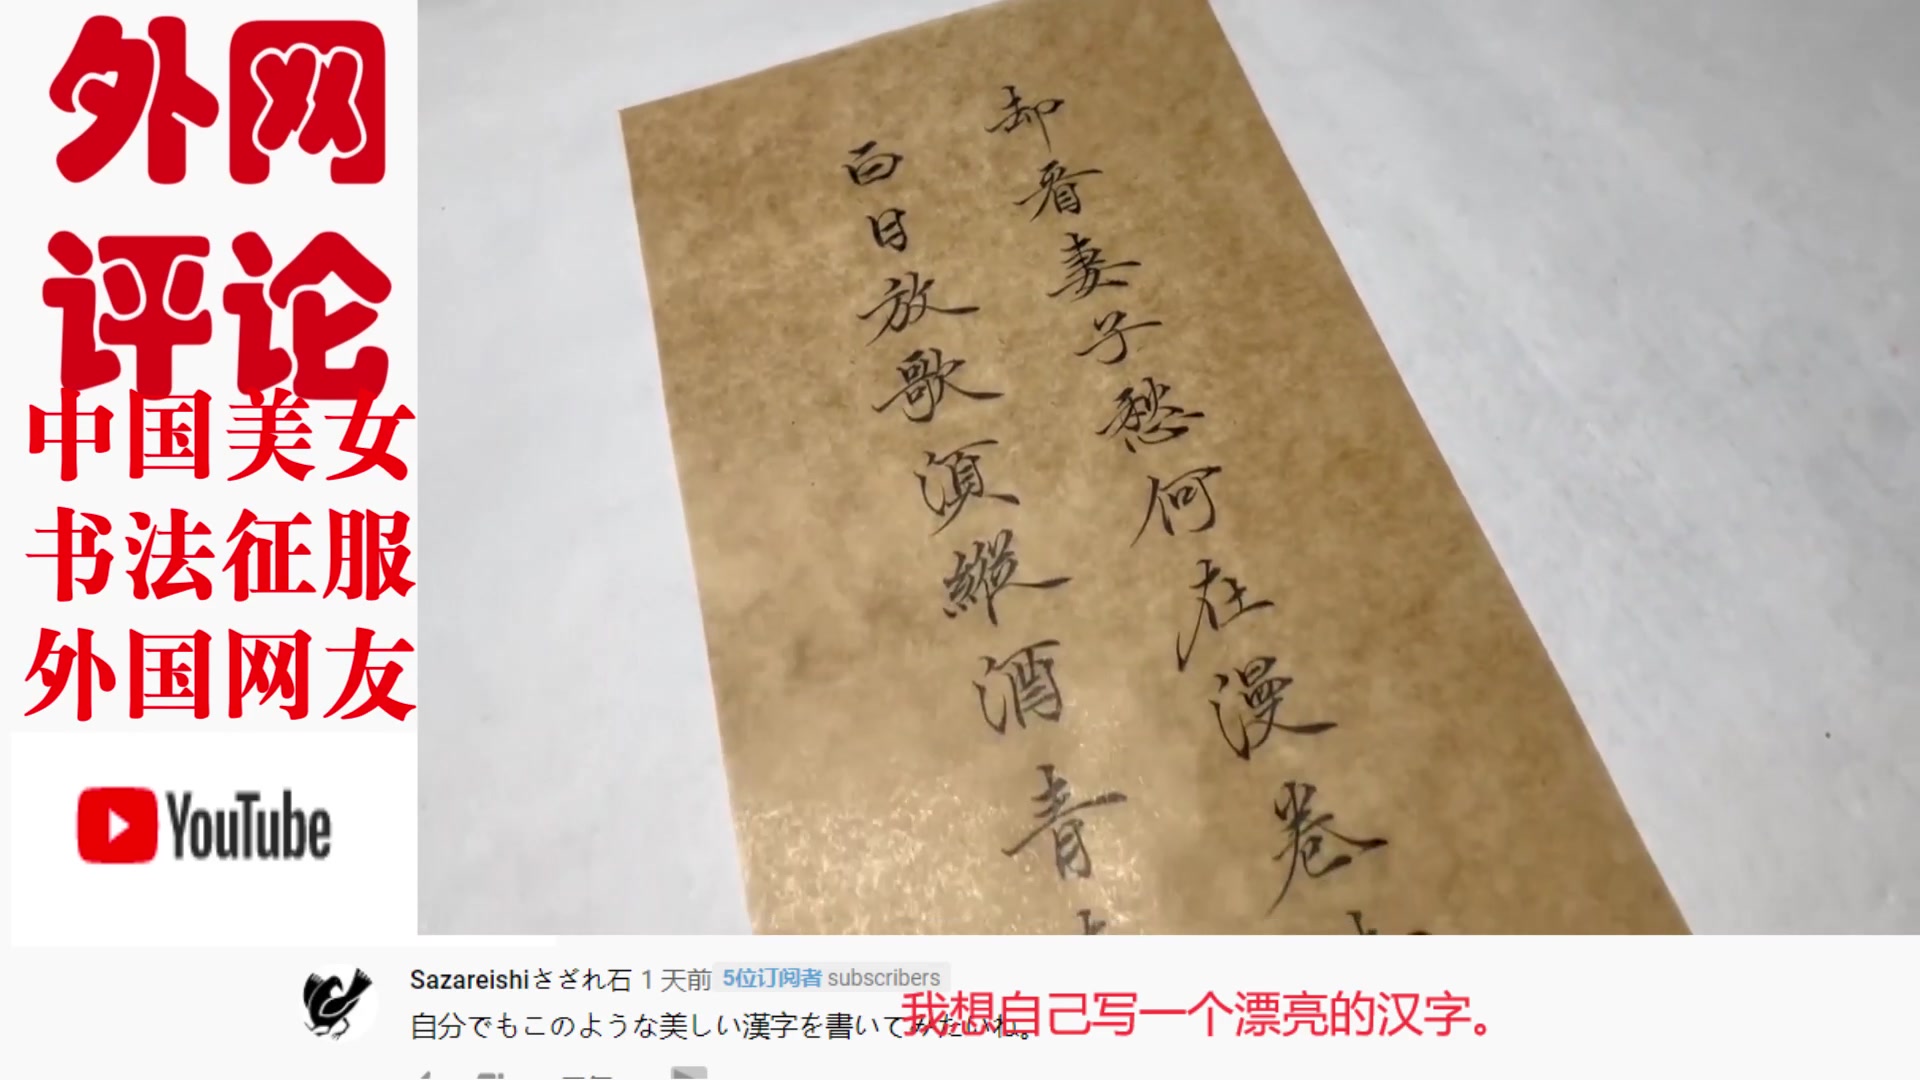 外网
评论
中国美女
书法征服
外国网友
YouTube
却看妻子愁何在漫卷
白日放歌须縱酒青
Sazareishiさざれ石 1 天前 5位订阅者 subscribers
自分でもこのような美しい漢字を書いてみたいね。
我想自己写一个漂亮的汉字。